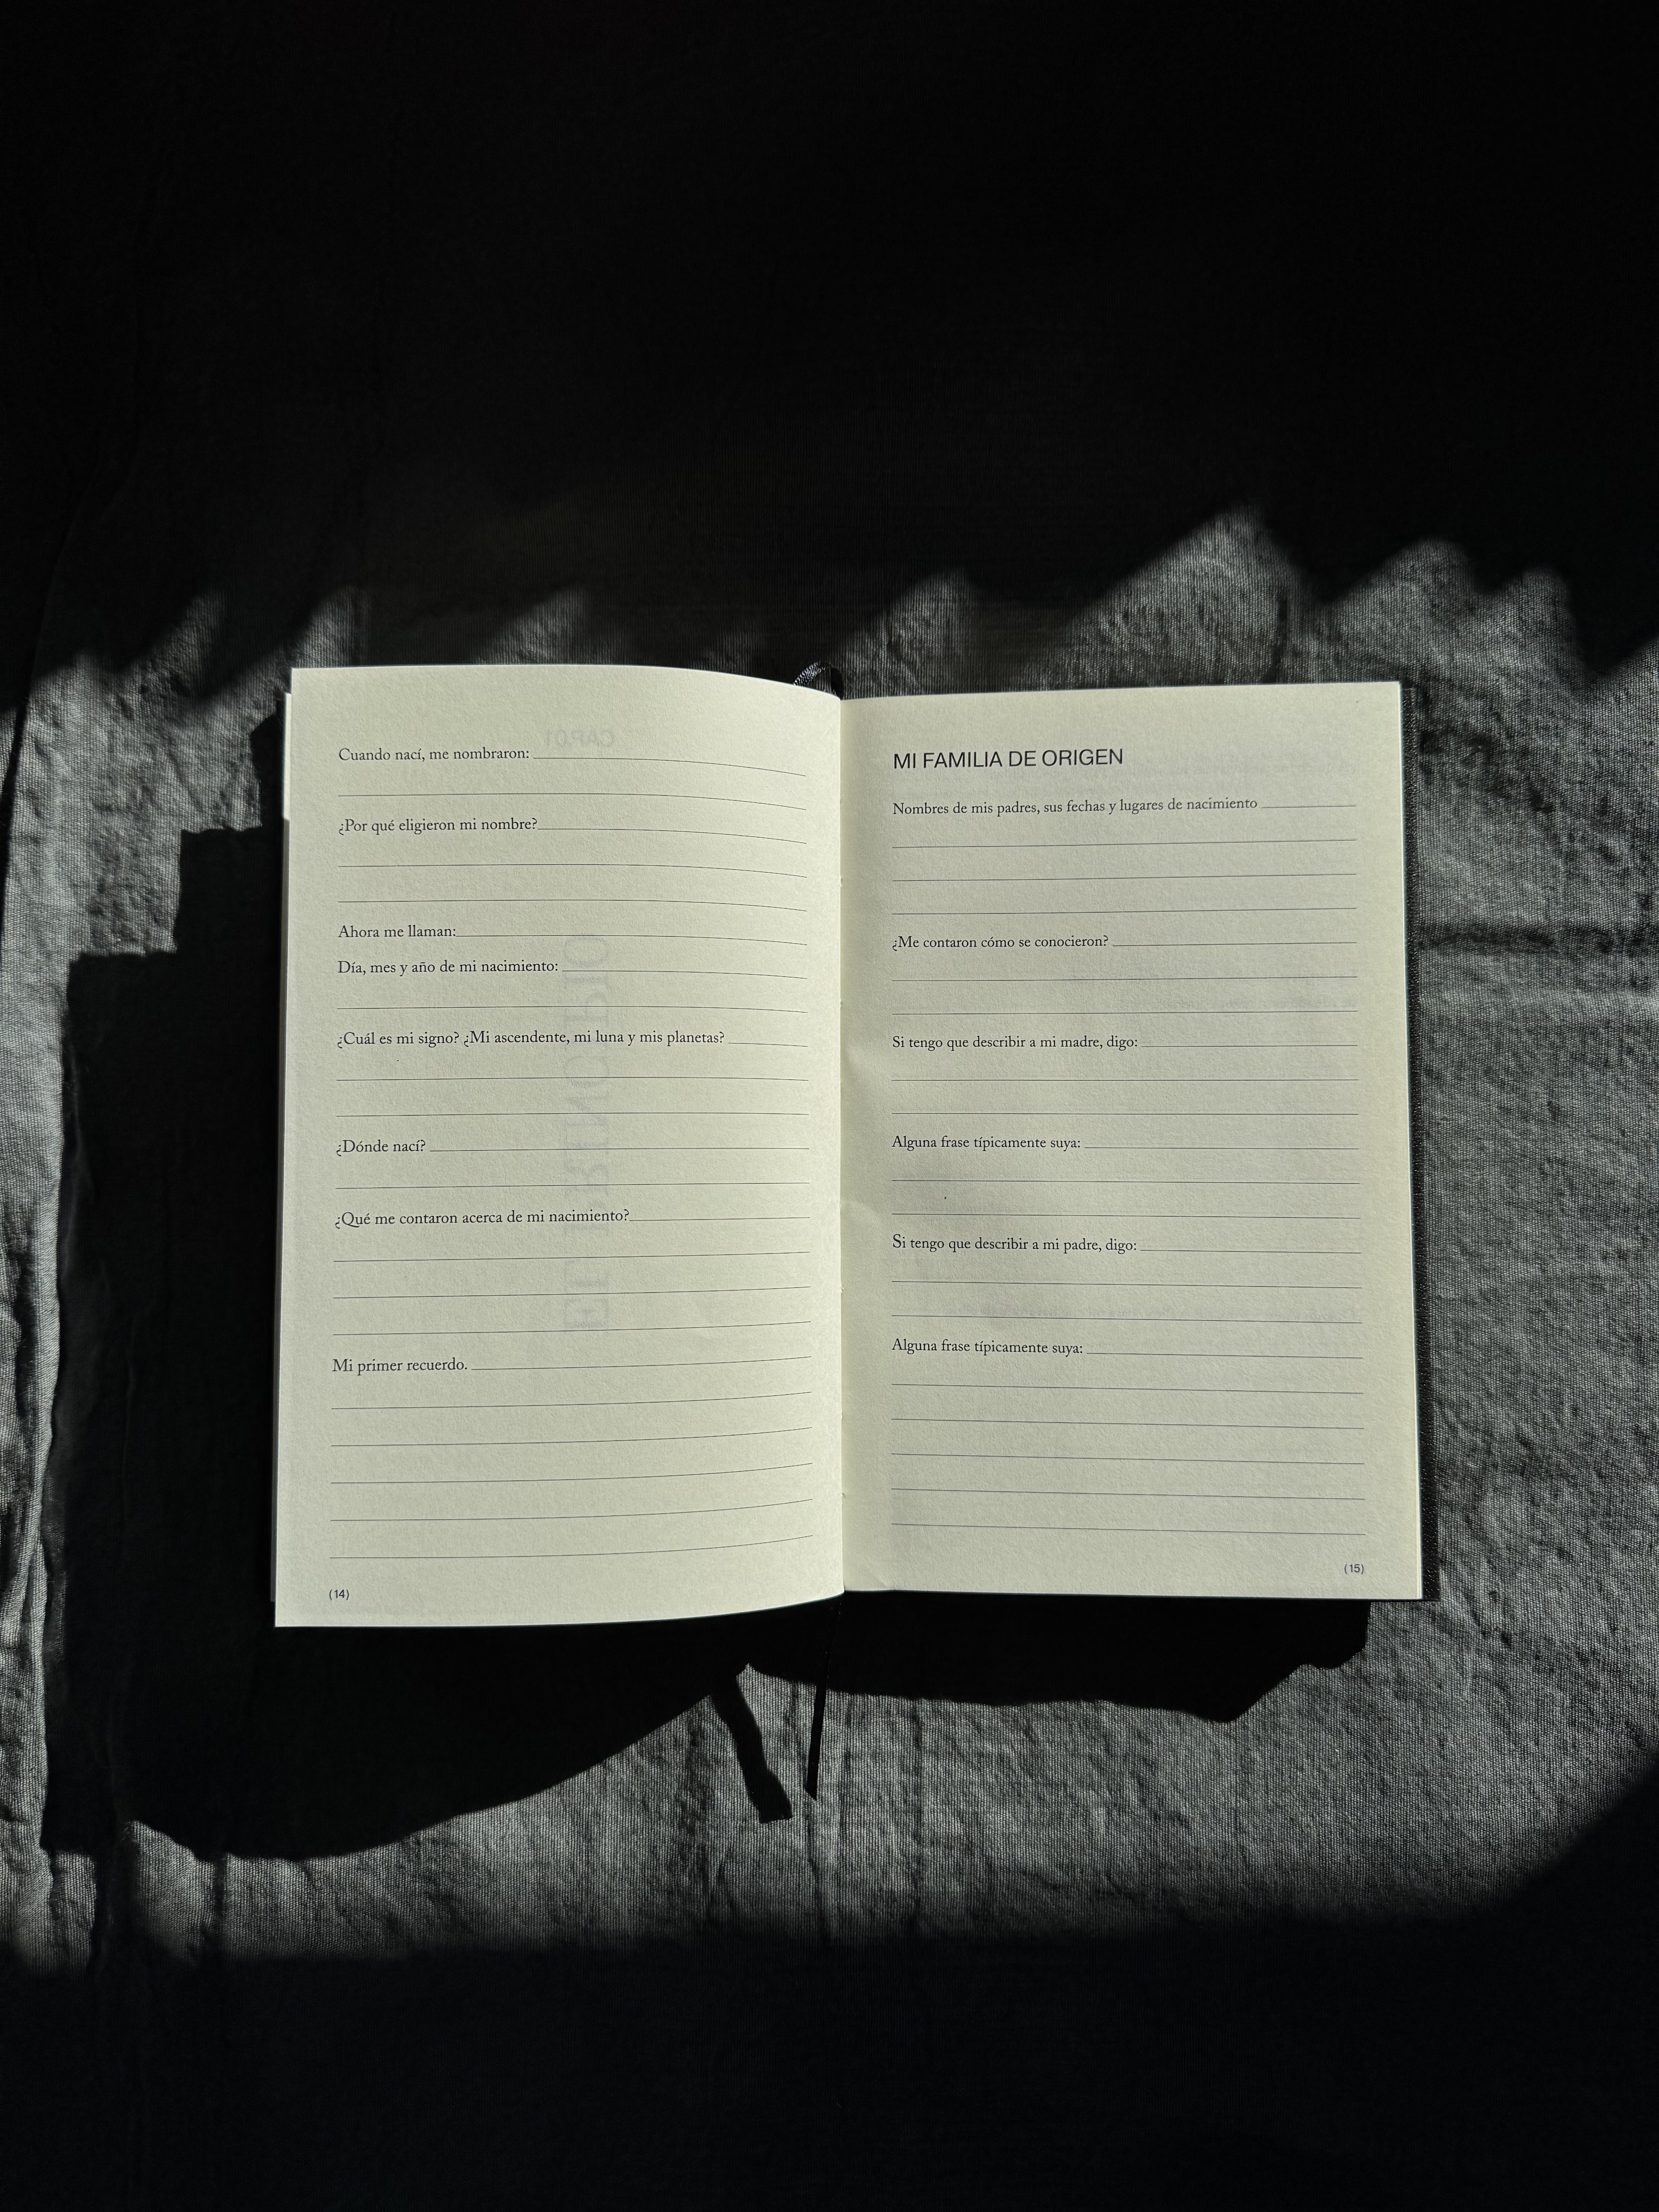 Cuando nací, me nombraron:
¿Por qué eligieron mi nombre?
Ahora me llaman:
Día, mes y año de mi nacimiento:
¿Cuál es mi signo? ¿Mi ascendente, mi luna y mis planetas?
¿Dónde nací?
¿Qué me contaron acerca de mi nacimiento?
Mi primer recuerdo.
(14)
MI FAMILIA DE ORIGEN
Nombres de mis padres, sus fechas y lugares de nacimiento
¿Me contaron cómo se conocieron?
Si tengo que describir a mi madre, digo:
Alguna frase típicamente suya:
Si tengo que describir a mi padre, digo:
Alguna frase típicamente suya:
(15)